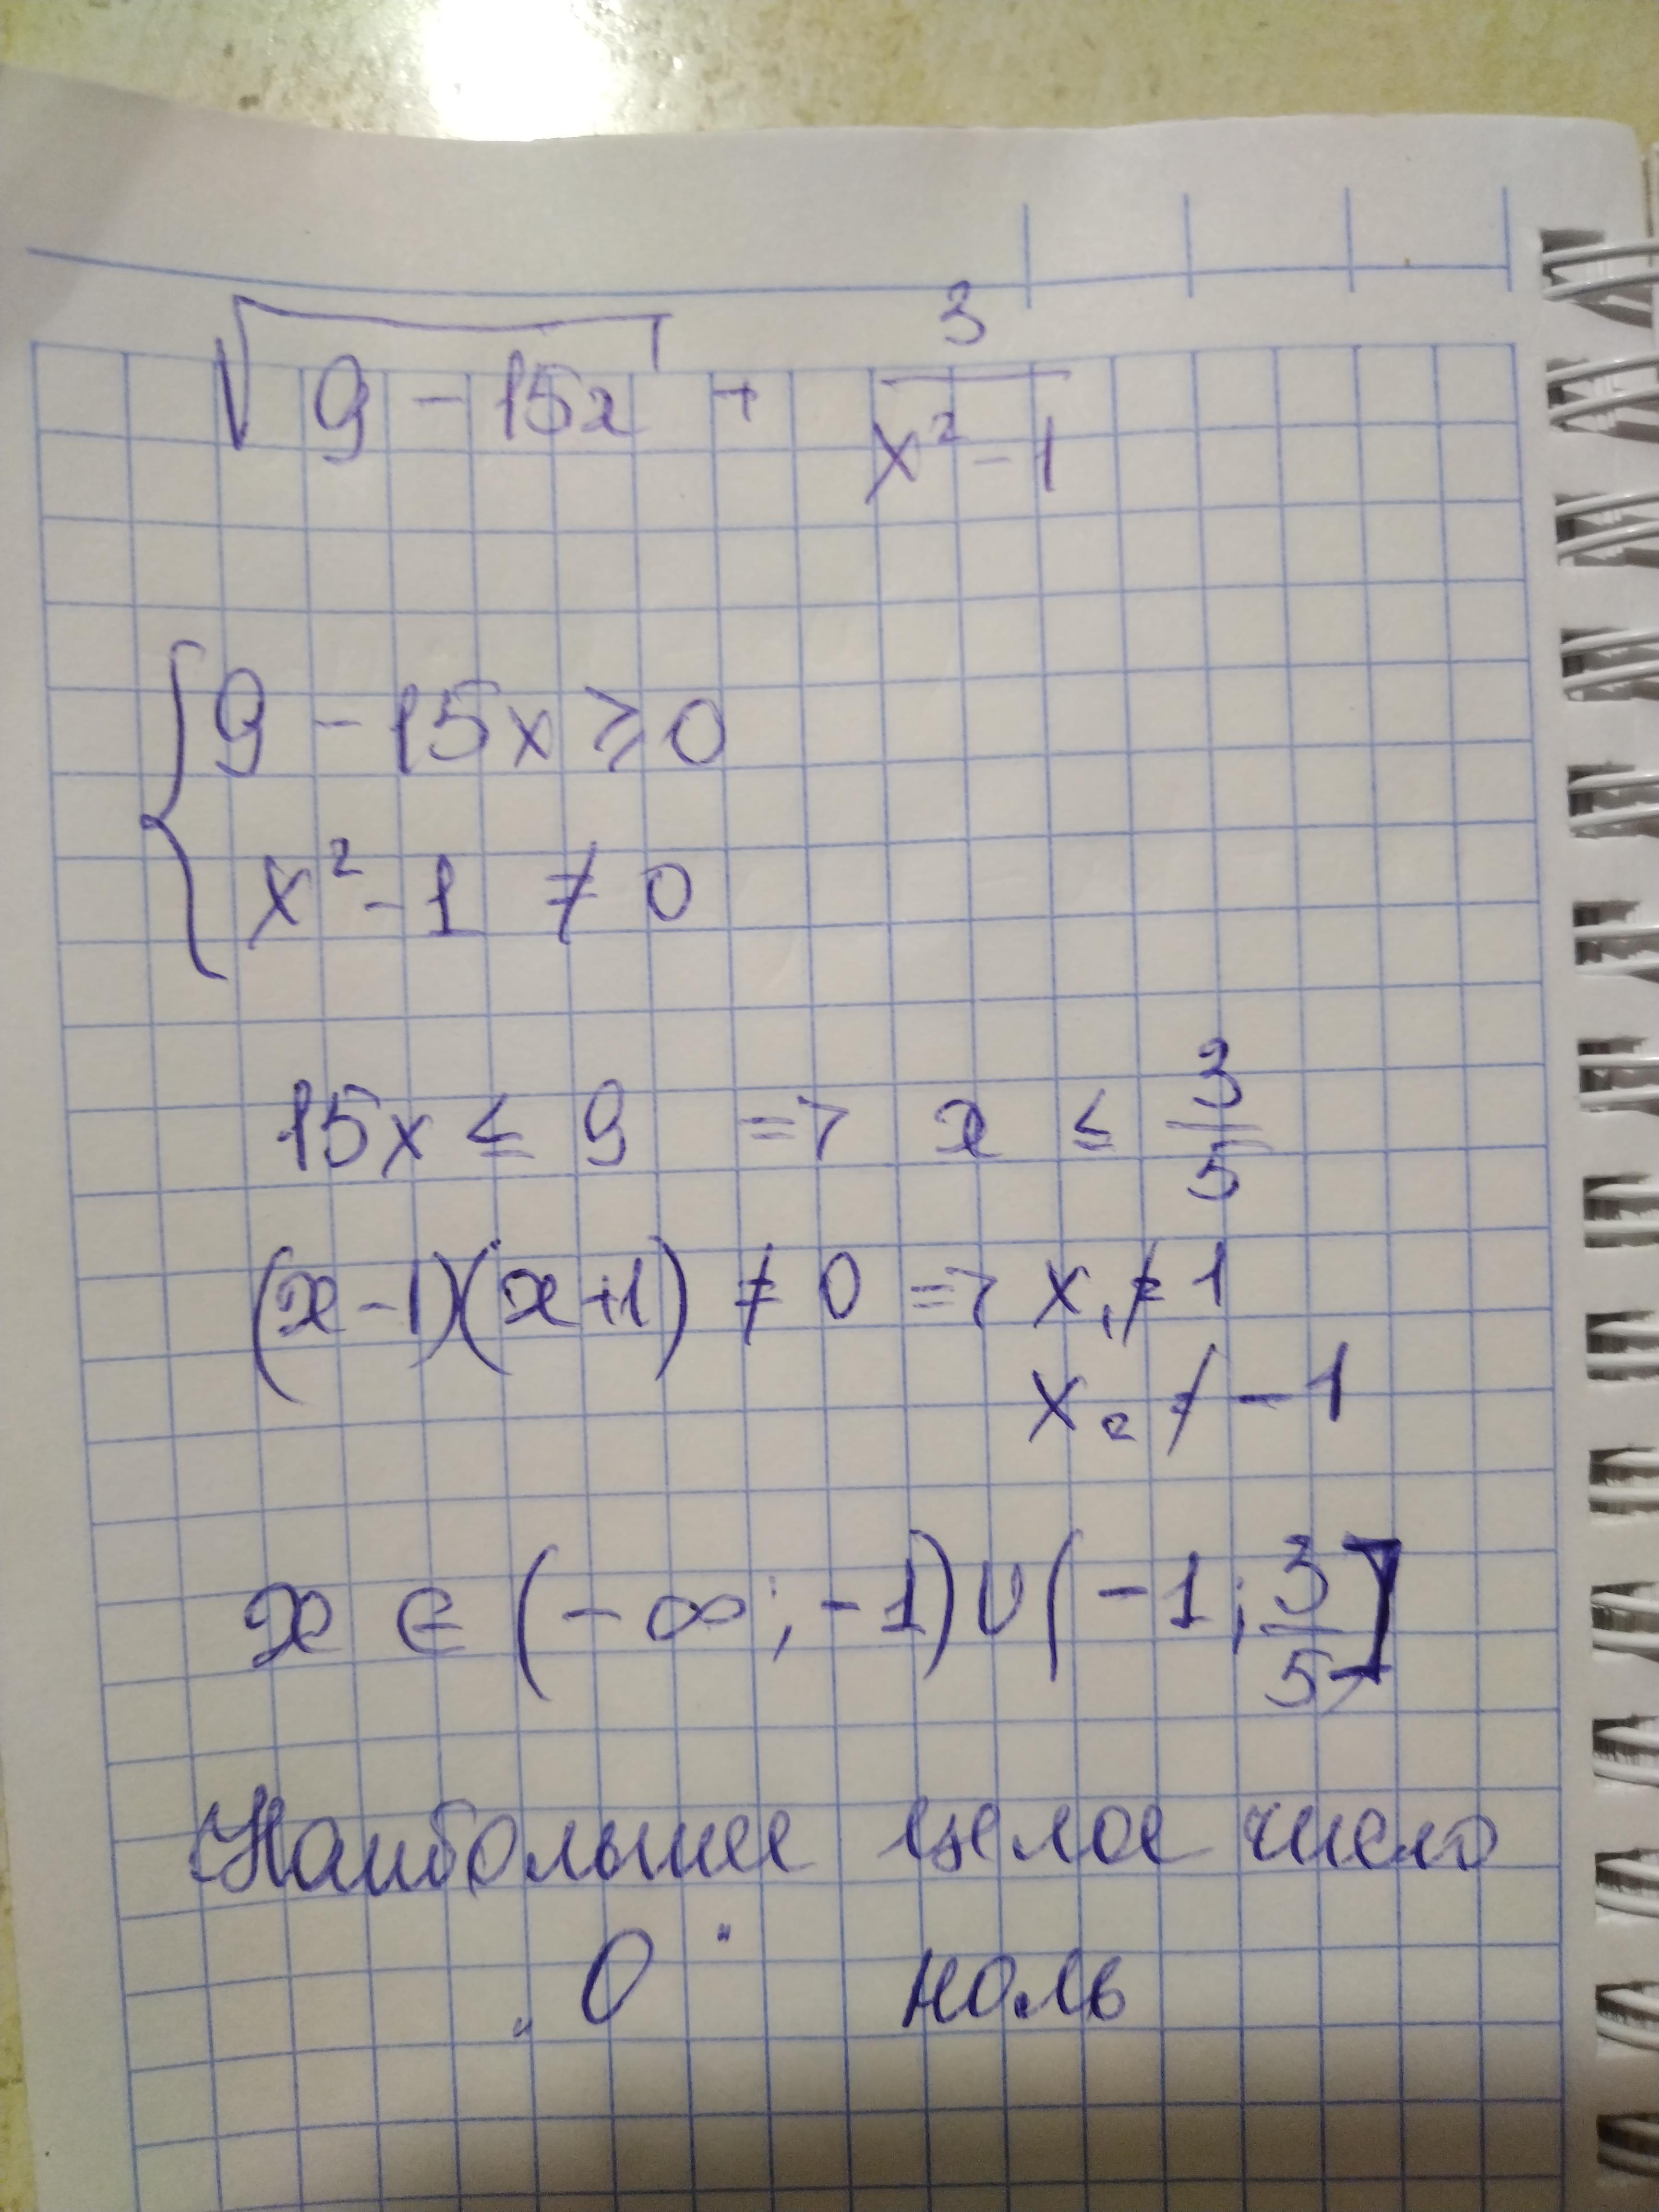 √(9 - 15x) + 3/(x² - 1)
{ 9 - 15x ⩾ 0
x² - 1 ≠ 0
15x ≤ 9 => x ≤ 3/5
(x-1)(x+1) ≠ 0 => x₁ ≠ 1
x₂ ≠ -1
x ∈ (-∞; -1) ∪ (-1; 3/5]
Наибольшее целое число
„0" ноль